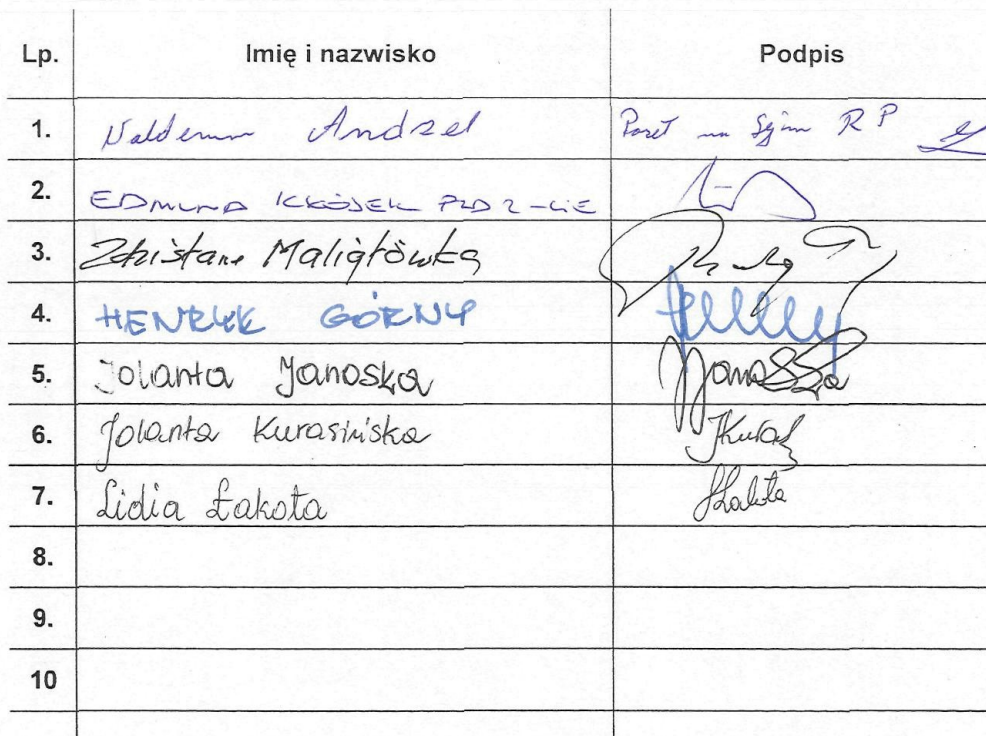 Lp. Imię i nazwisko Podpis
1. Waldemar Andzel Poseł na Sejm RP
2. EDMUND
3. Zdzisław Maligłówka
4. HENRYK GÓRNY
5. Jolanta Janoska Janoska
6. Jolanta Kurasińska JKuraś
7. Lidia Łakota Łakota
8.
9.
10